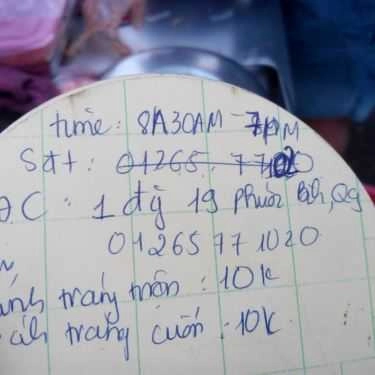 time: 8A30AM - 7PM
Sđt: 01265.771020
ĐC: 1 đg 19 Phước Bh, Q9
01265771020
ánh tráng trộn: 10k
ánh tráng cuốn: 10k